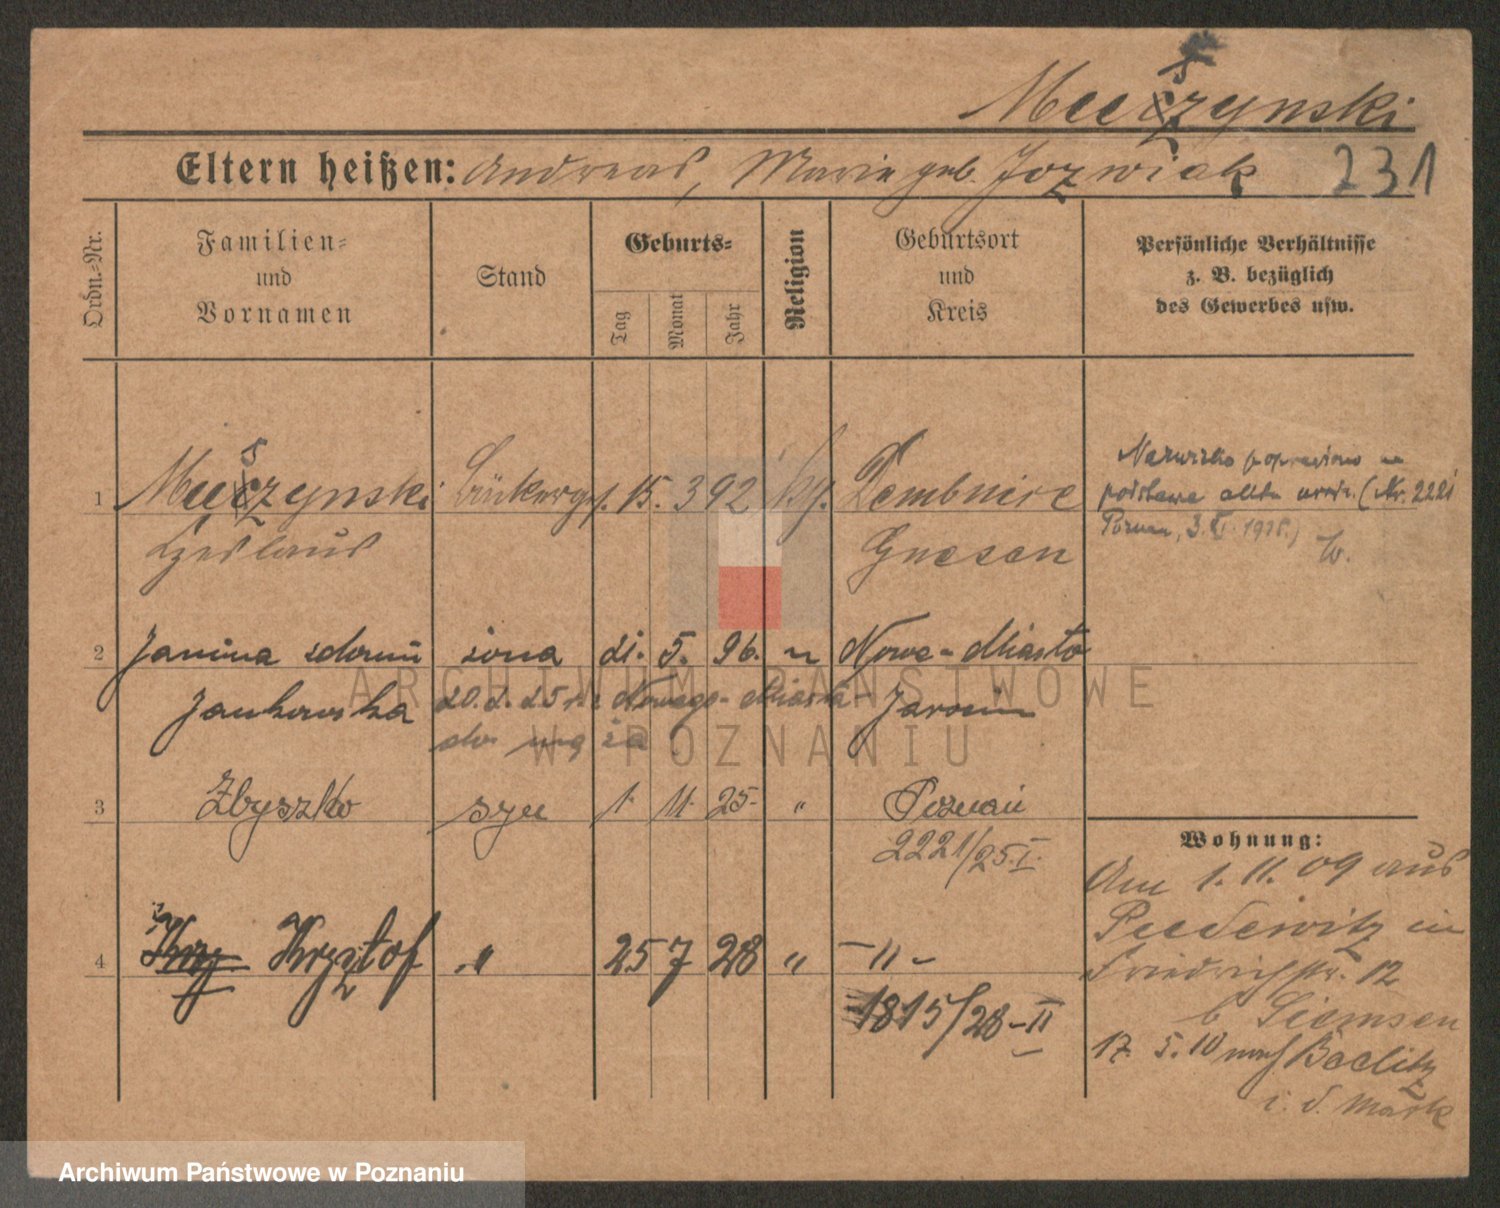 Mueszynski
Eltern heißen: Andreas, Marie geb. Jozwiak 231
Ordn.-Nr.
Familien-
und
Vornamen
Stand
Geburts-
Tag
Monat
Jahr
Religion
Geburtsort
und
Kreis
Persönliche Verhältnisse
z. B. bezüglich
des Gewerbes usw.
1 15. 3 92
Czeslaus Gnesen
Nazwisko poprawiono na
podstawie aktu urodz. (Nr. 2221
Poznań, 3. XI. 1925.)
2 Janina żona 21. 5. 96. " Nowe-Miasto
Jankowska 20. 2. 25 Nowego-Miasta Jarocin
do męża
3 Zbyszko syn 1. 11. 25. " Poznań
2221/25. I.
4 Krzy Krzysztof " 25 7 28 " -"-
1815/28-II
Wohnung:
Am 1. 11. 09 aus
in
Friedrichstr. 12
b Siemsen
17. 5. 10 nach Beelitz
i. d. Mark
ARCHIWUM PAŃSTWOWE
W POZNANIU
Archiwum Państwowe w Poznaniu